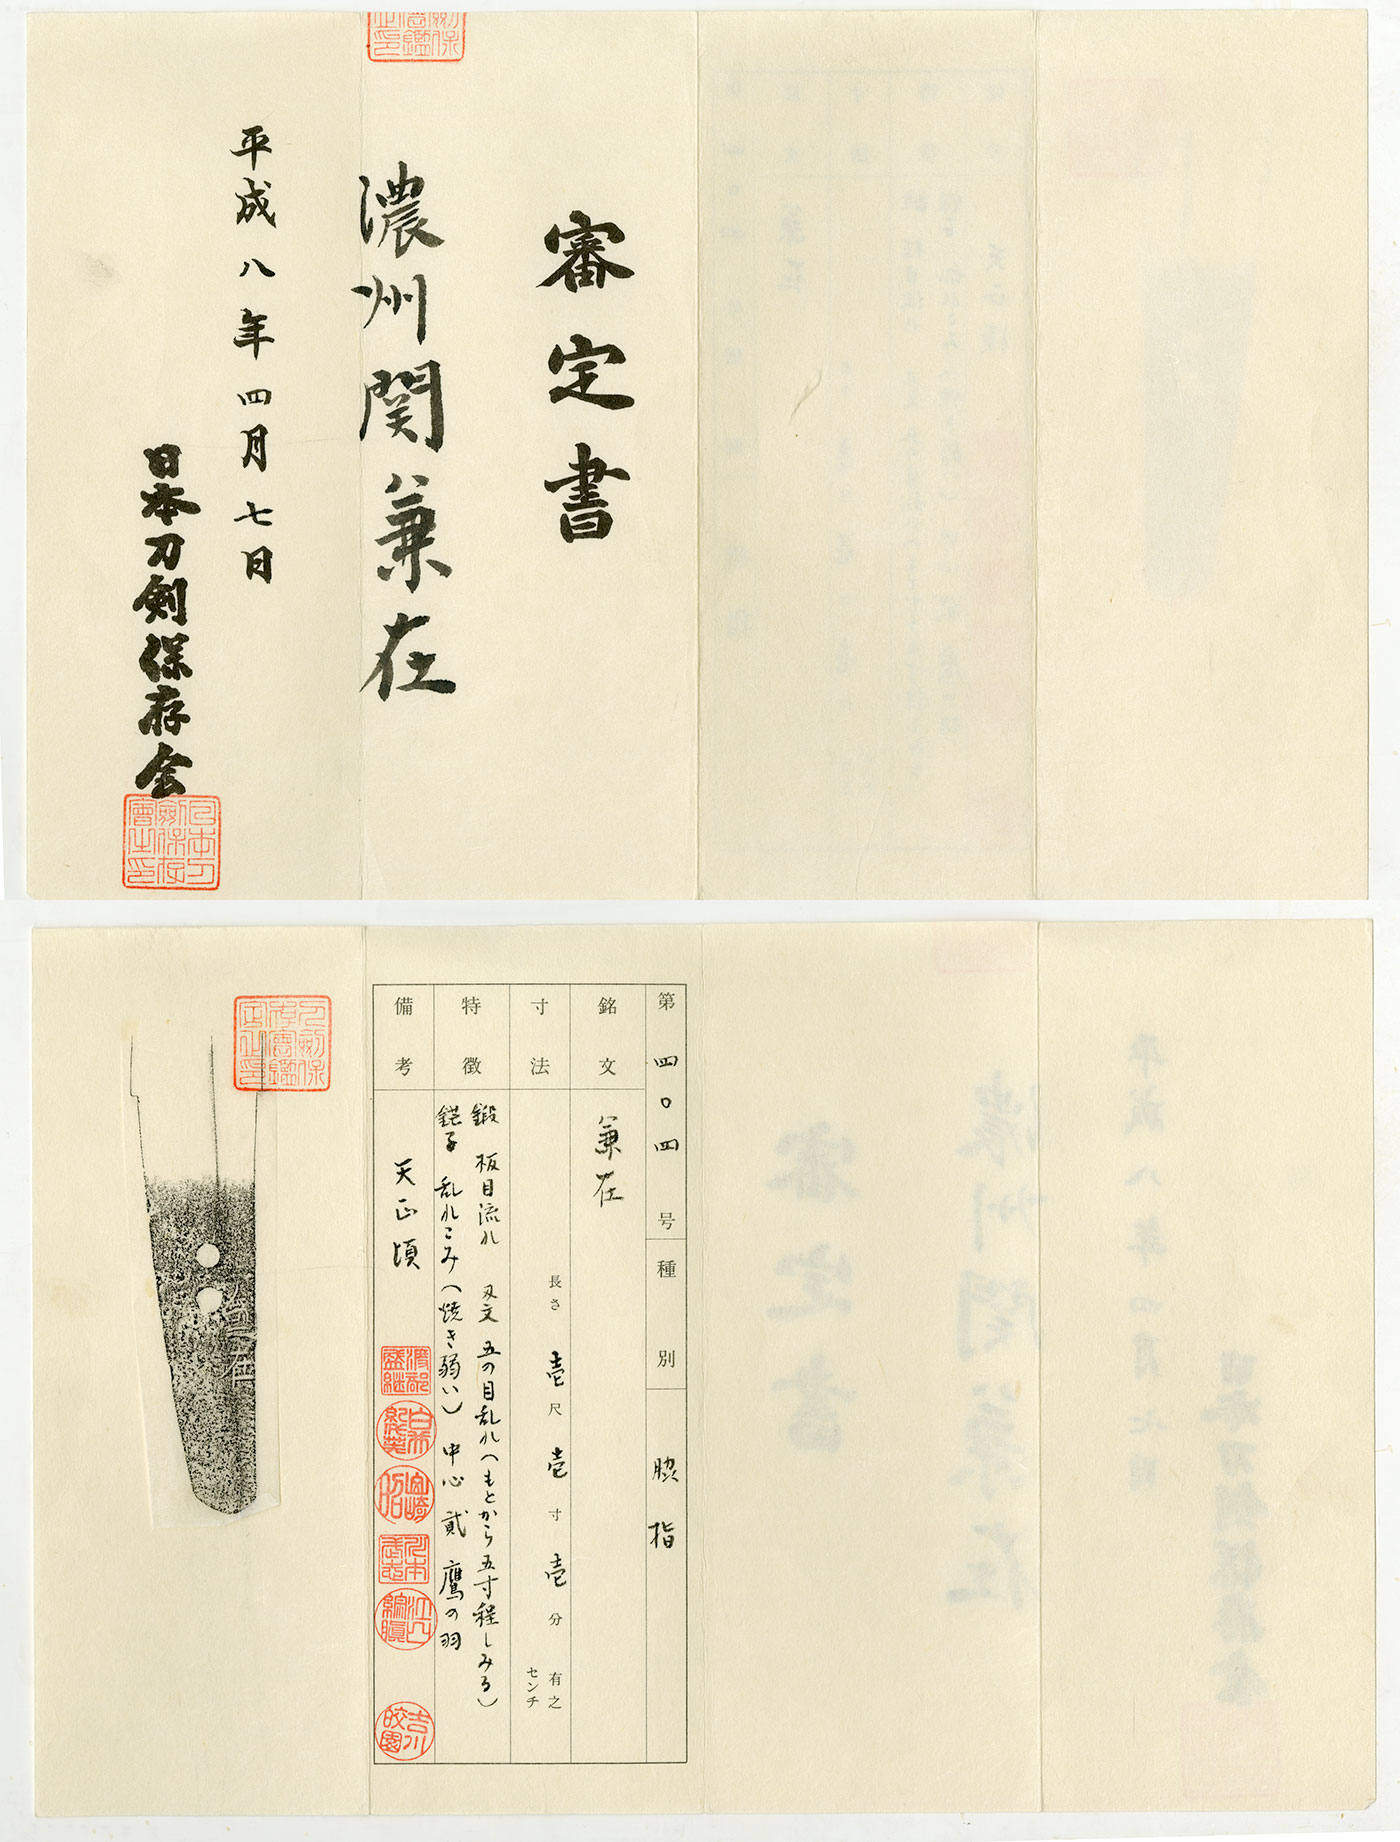 審定書
濃州関兼在
平成八年四月七日
日本刀剣保存会
第四〇四号
種別 脇指
銘文 兼在
寸法 長さ 壱尺壱寸壱分 有之
センチ
特徴 鍛 板目流れ 刃文 五の目乱れ(もとから五寸程しみる)
鋩子 乱れこみ(焼き弱い) 中心 貮 鷹の羽
備考 天正頃
兼在